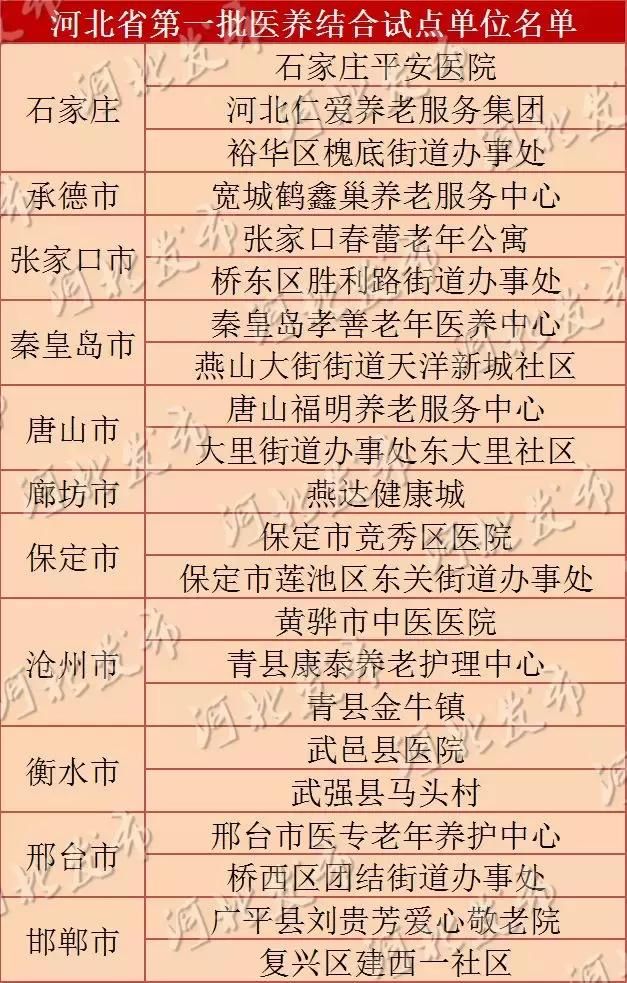 河北省第一批医养结合试点单位名单
石家庄
石家庄平安医院
河北仁爱养老服务集团
裕华区槐底街道办事处
承德市
宽城鹤鑫巢养老服务中心
张家口市
张家口春蕾老年公寓
桥东区胜利路街道办事处
秦皇岛市
秦皇岛孝善老年医养中心
燕山大街街道天洋新城社区
唐山市
唐山福明养老服务中心
大里街道办事处东大里社区
廊坊市
燕达健康城
保定市
保定市竞秀区医院
保定市莲池区东关街道办事处
沧州市
黄骅市中医医院
青县康泰养老护理中心
青县金牛镇
衡水市
武邑县医院
武强县马头村
邢台市
邢台市医专老年养护中心
桥西区团结街道办事处
邯郸市
广平县刘贵芳爱心敬老院
复兴区建西一社区
河北发布